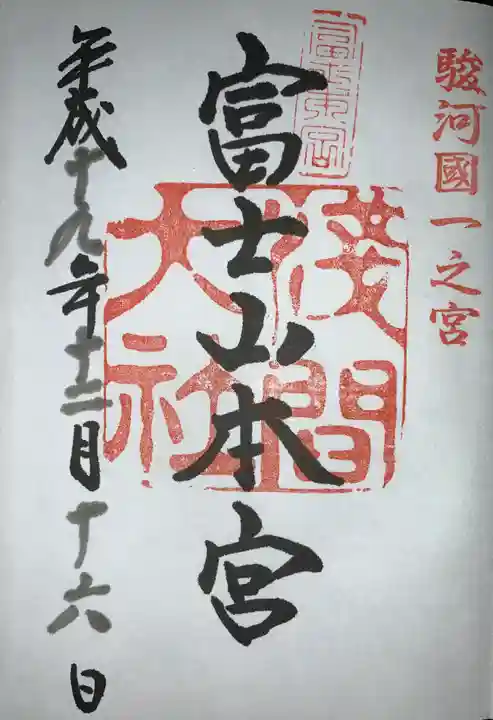 駿河國一之宮
富士山本宮
浅間大社
平成十九年十二月十六日